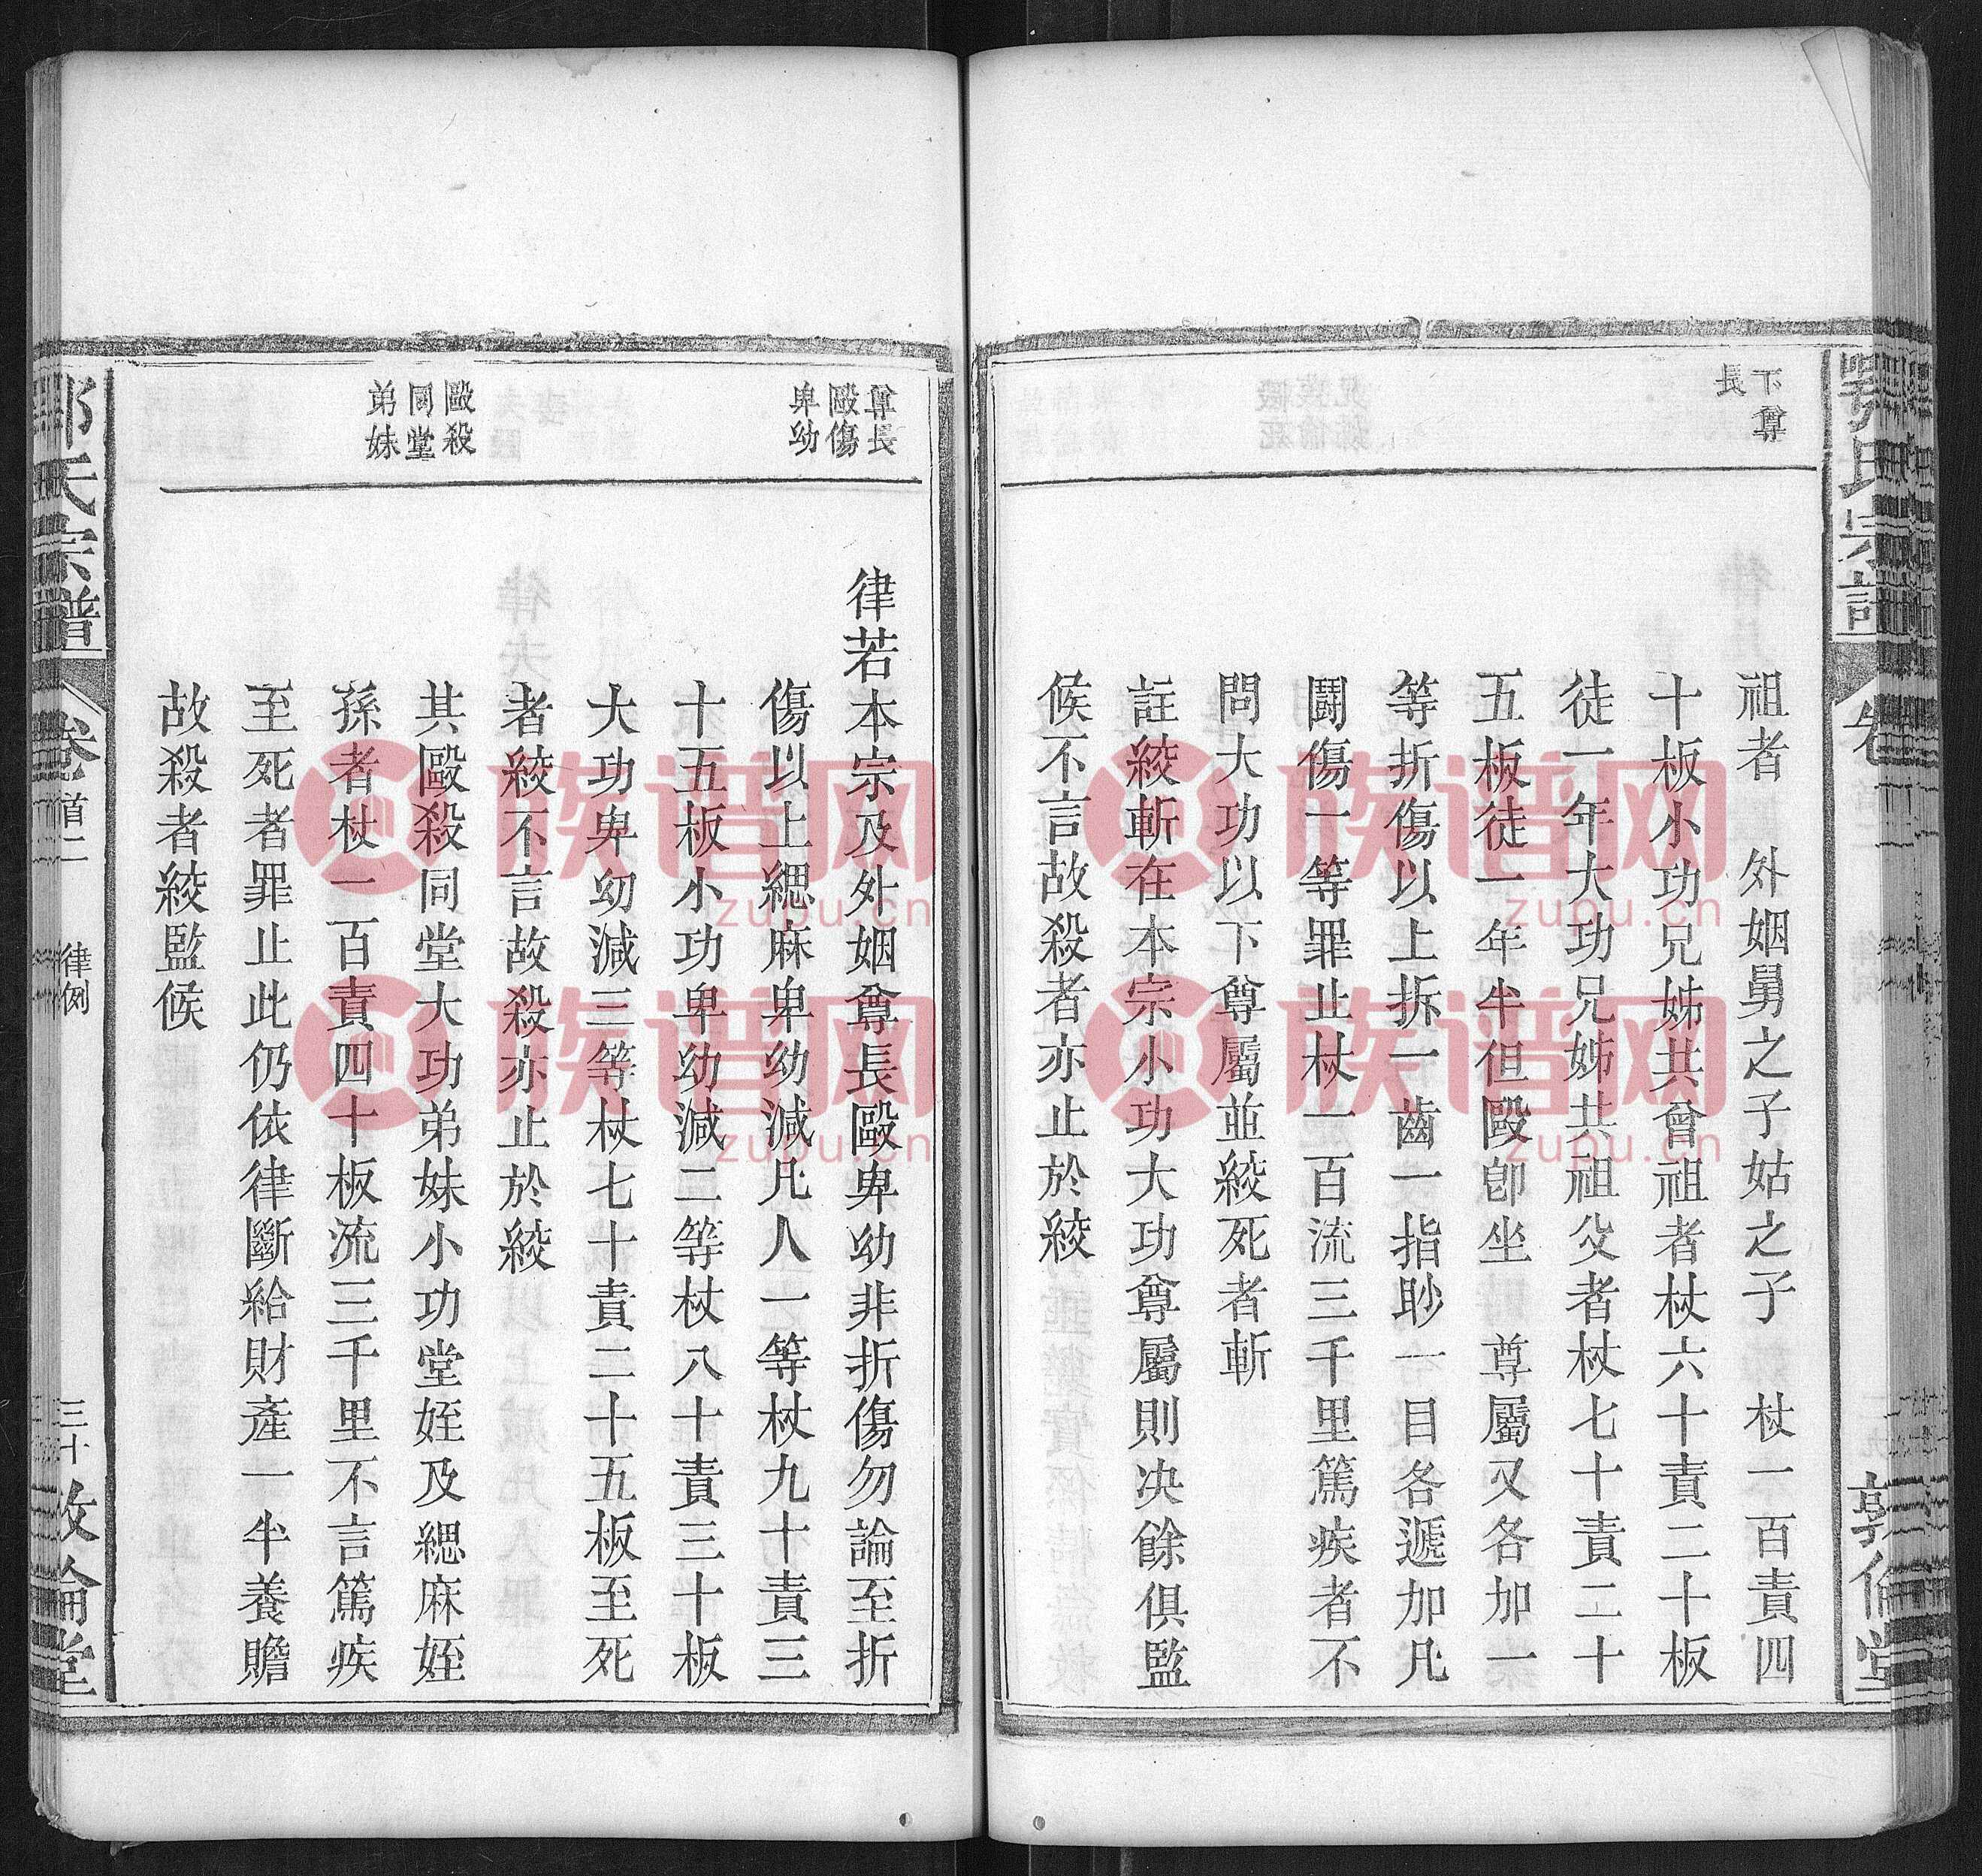 下尊
長
祖者　外姻舅之子姑之子　杖一百責四
十板小功兄姊共曾祖者杖六十責二十板
徒一年大功兄姊共祖父者杖七十責二十
五板徒一年半但毆卽坐　尊屬又各加一
等折傷以上拆一齒一指眇一目各遞加凡
鬭傷一等罪止杖一百流三千里篤疾者不
問大功以下尊屬並絞死者斬
註絞斬在本宗小功大功尊屬則決餘俱監
候不言故殺者亦止於絞
尊長
毆傷
卑幼
律若本宗及外姻尊長毆卑幼非折傷勿論至折
傷以上緦麻卑幼減凡人一等杖九十責三
十五板小功卑幼減二等杖八十責三十板
大功卑幼減三等杖七十責二十五板至死
者絞不言故殺亦止於絞
毆殺
同堂
弟妹
其毆殺同堂大功弟妹小功堂姪及緦麻姪
孫者杖一百責四十板流三千里不言篤疾
至死者罪止此仍依律斷給財產一半養贍
故殺者絞監候
氏宗譜
卷首二
律例
三十
敦倫堂
族谱网
zupu.cn
族谱网
zupu.cn
族谱网
zupu.cn
族谱网
zupu.cn